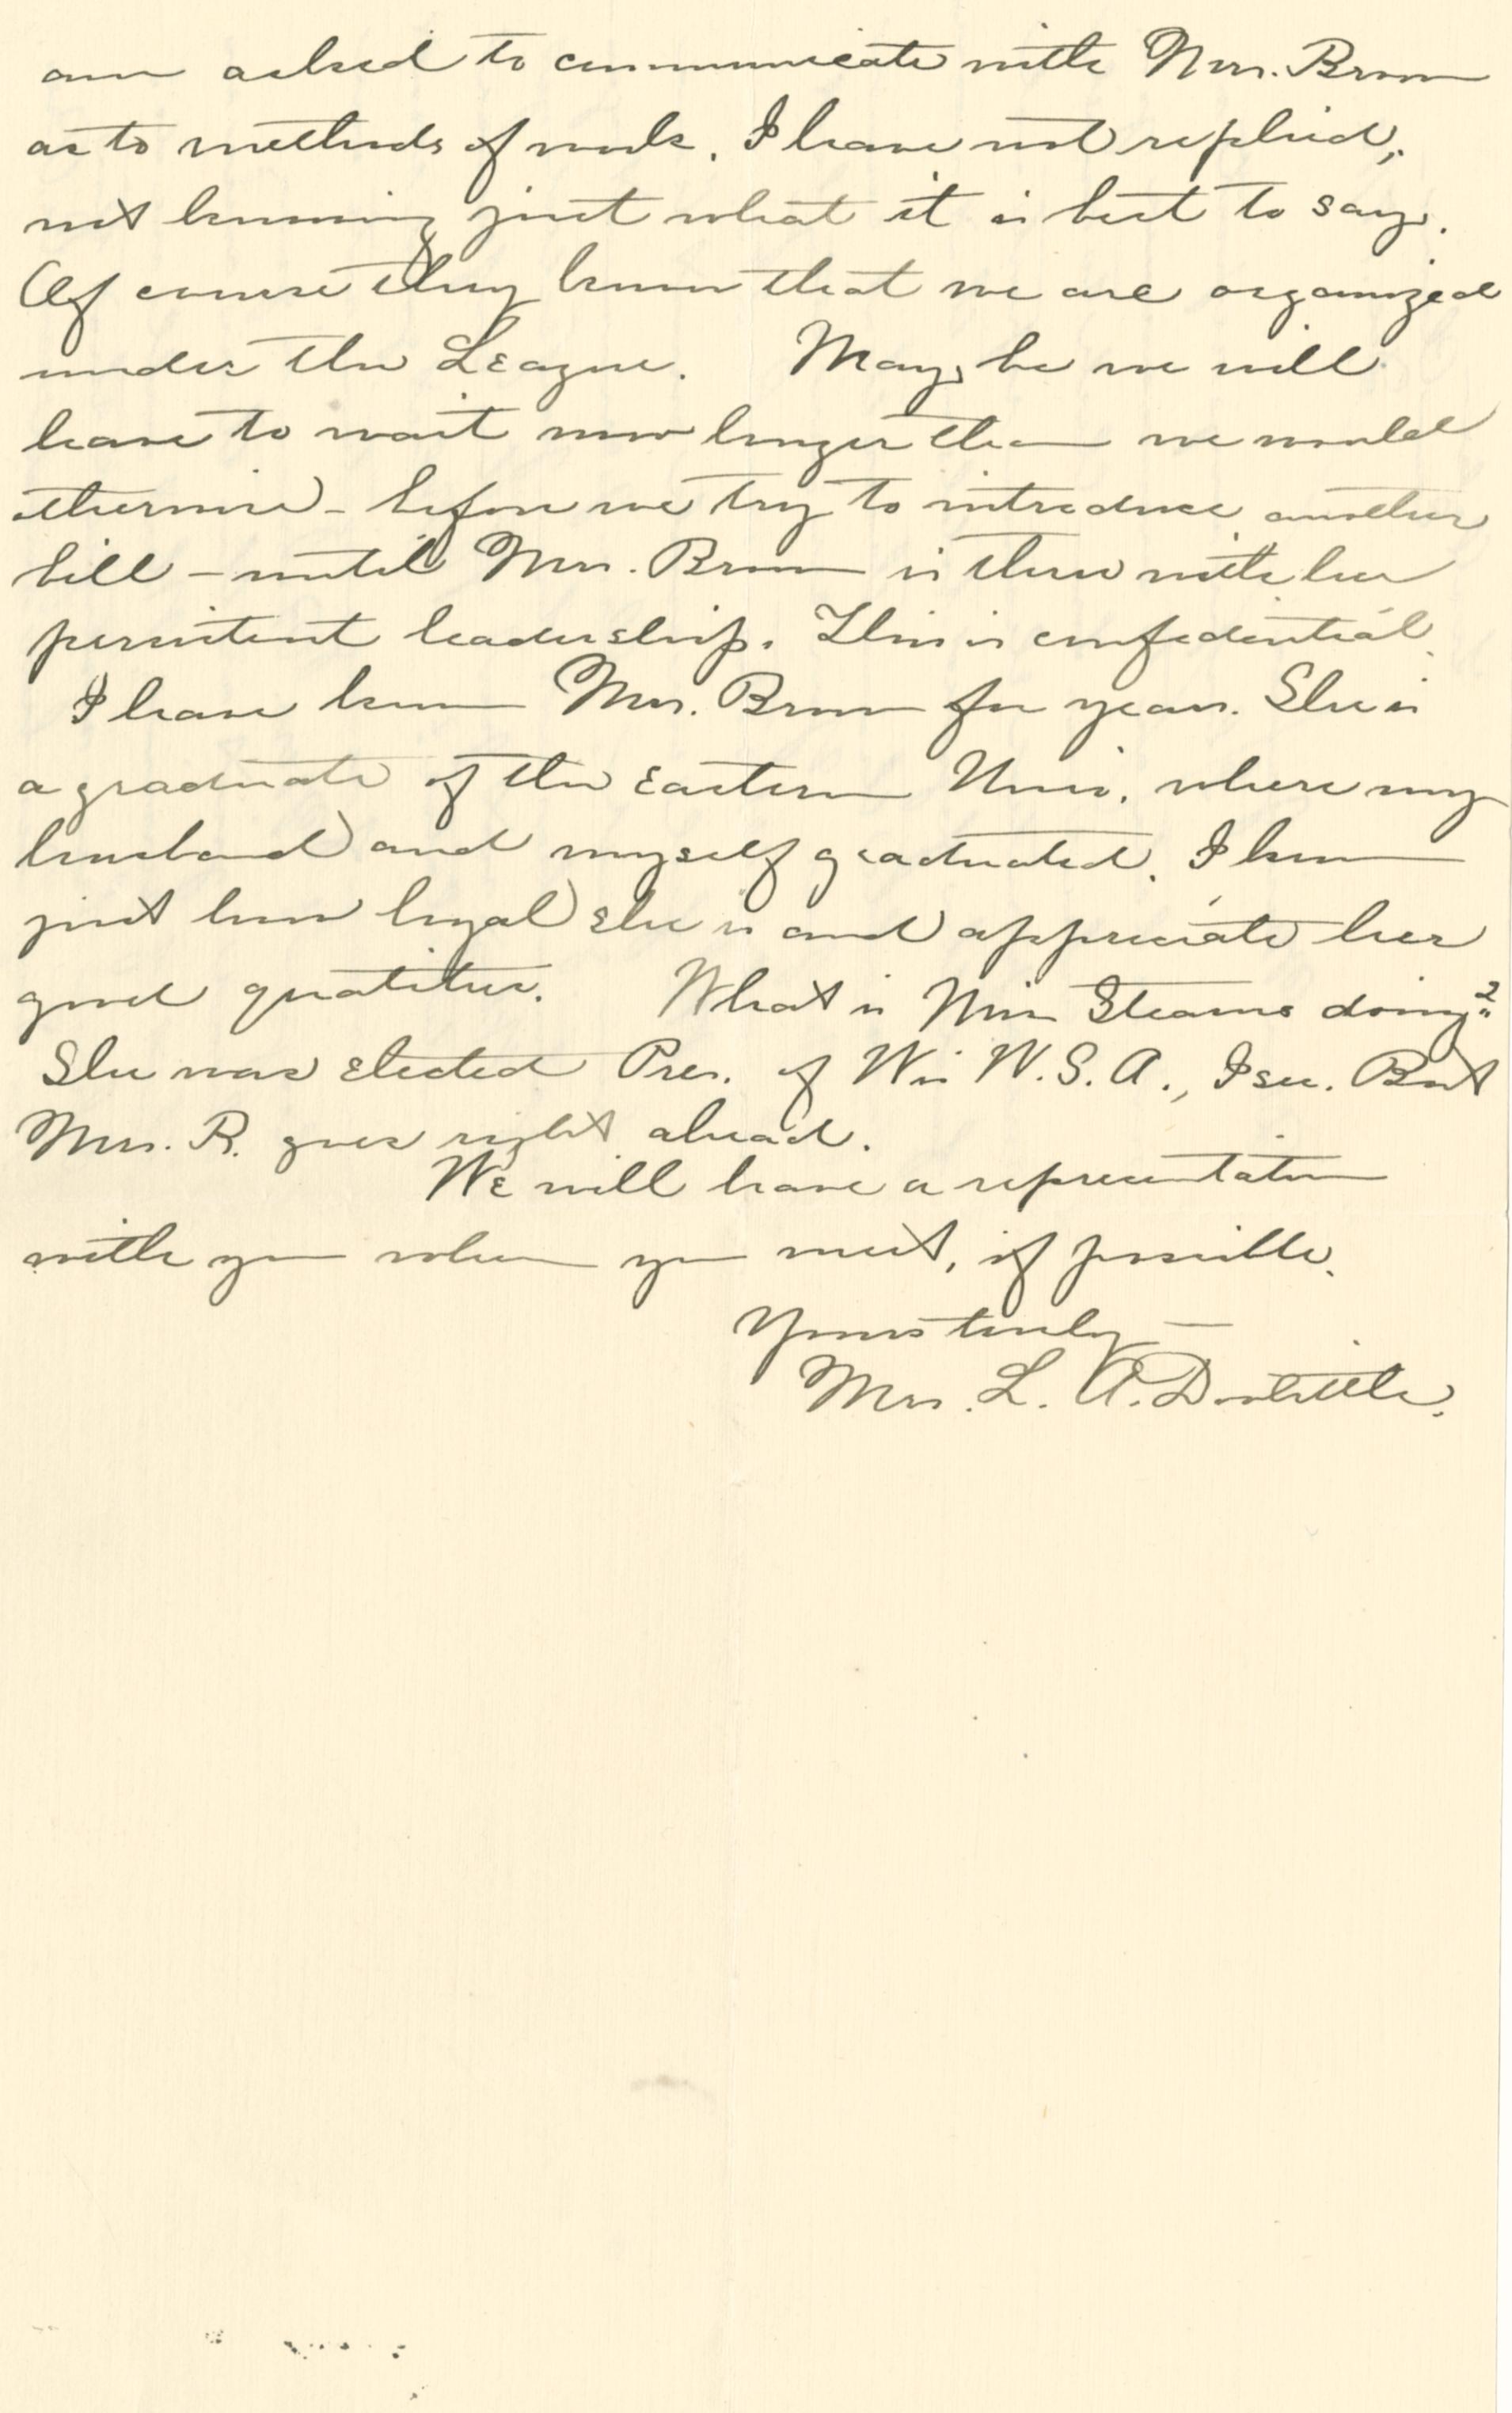 am asked to communicate with Mrs. Brown
as to methods of work. I have not replied,
not knowing just what it is best to say.
Of course they know that we are organized
under the League. May be we will
have to wait now longer than we would
otherwise - before we try to introduce another
bill - until Mrs. Brown is there with her
persistent leadership. This is confidential.
I have known Mrs. Brown for years. She is
a graduate of the Eastern Univ. where my
husband and myself graduated. I know
just how loyal she is and appreciate her
good qualities. What is Miss Stearns doing?
She was elected Pres. of Wis W.S.A., I see. But
Mrs. R. goes right ahead.
We will have a representation
with you when you meet, if possible.
Yours truly —
Mrs. L. A. Doolittle.